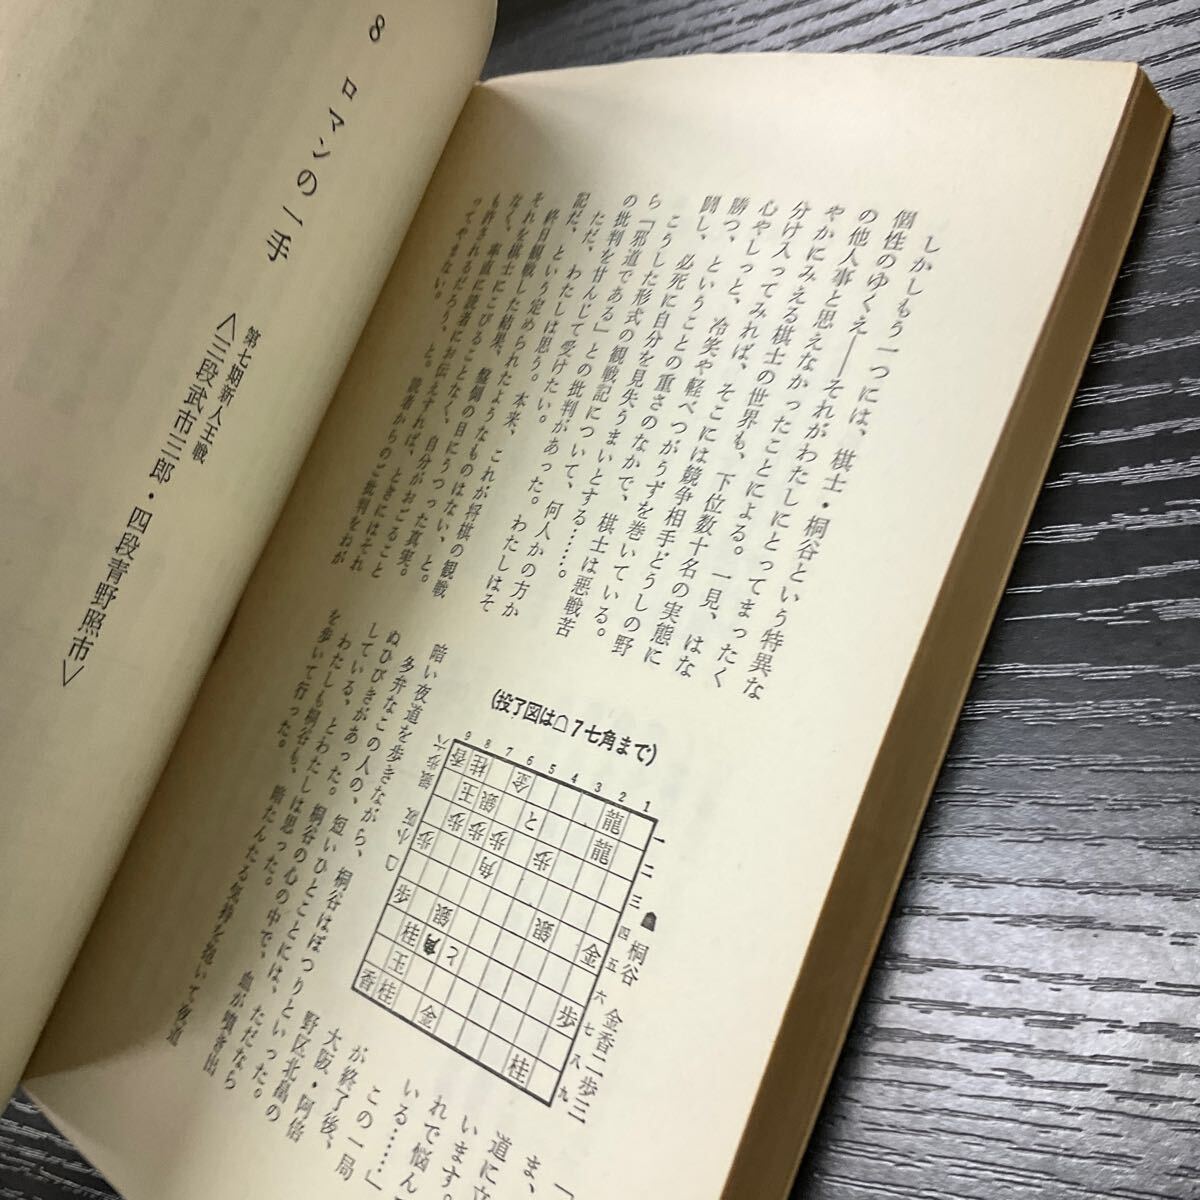 しかしもう一つには、棋士・桐谷という特異な
個性のゆくえ――それがわたしにとってまったく
の他人事と思えなかったことによる。一見、はな
やかにみえる棋士の世界も、下位数十名の実態に
分け入ってみれば、そこには競争相手どうしの野
心やしっと、冷笑や軽べつがうずを巻いている。
勝つ、ということの重さのなかで、棋士は悪戦苦
闘し、必死に自分を見失うまいとする……。
こうした形式の観戦記について、何人かの方か
ら「邪道である」との批判があった。わたしはそ
の批判を甘んじて受けたい。
ただ、わたしは思う。本来、これが将棋の観戦
記だ、という定められたようなものはない、と。
終日観戦した結果、盤側の目にうつった真実。
それを棋士にこびることなく、自分がおごること
なく、率直に読者にお伝えすれば、ときにはそれ
も許されるだろう、と。読者からのご批判をねが
ってやまない。
(投了図は☖7七角まで)
9 8 7 6 5 4 3 2 1
一 二 三 四 五 六 七 八 九
☗ 桐谷 金香二歩三
☖ 小阪 銀歩六
暗い夜道を歩きながら、桐谷はぽつりといった。
多弁なこの人の、短いひとことには、ただなら
ぬひびきがあった。桐谷の心の中で、血が噴き出
している、とわたしは思った。
わたしも桐谷も、暗たんたる気持を抱いて夜道
を歩いて行った。
「
ま、
道に立
います。
れで悩んで
いる……」
この一局
が終了後、
大阪・阿倍
野区北畠の
8 ロマンの一手
第七期新人王戦
〈三段武市三郎・四段青野照市〉